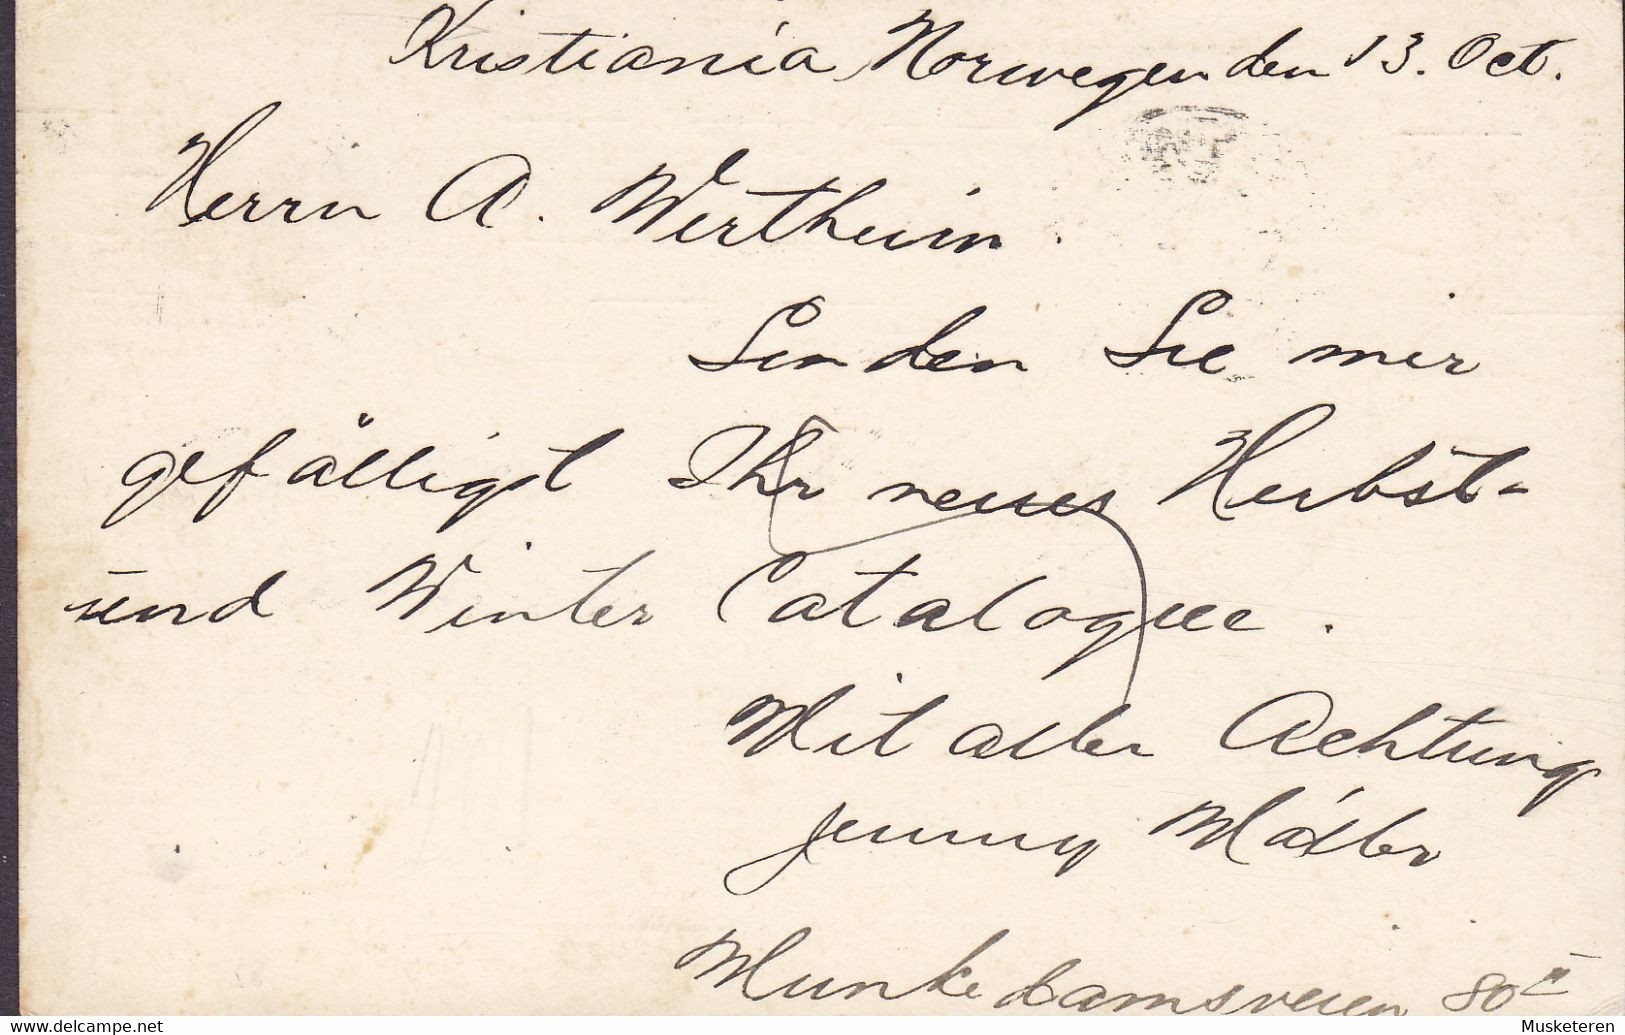 Kristiania, Norwegen den 13. Oct.
Herrn A. Wertheim.
Senden Sie mir
gefälligst Ihr neues Herbst-
und Winter Catalogue.
Mit aller Achtung
Jenny Möller
Munkedamsveien 80 II
Musketeren